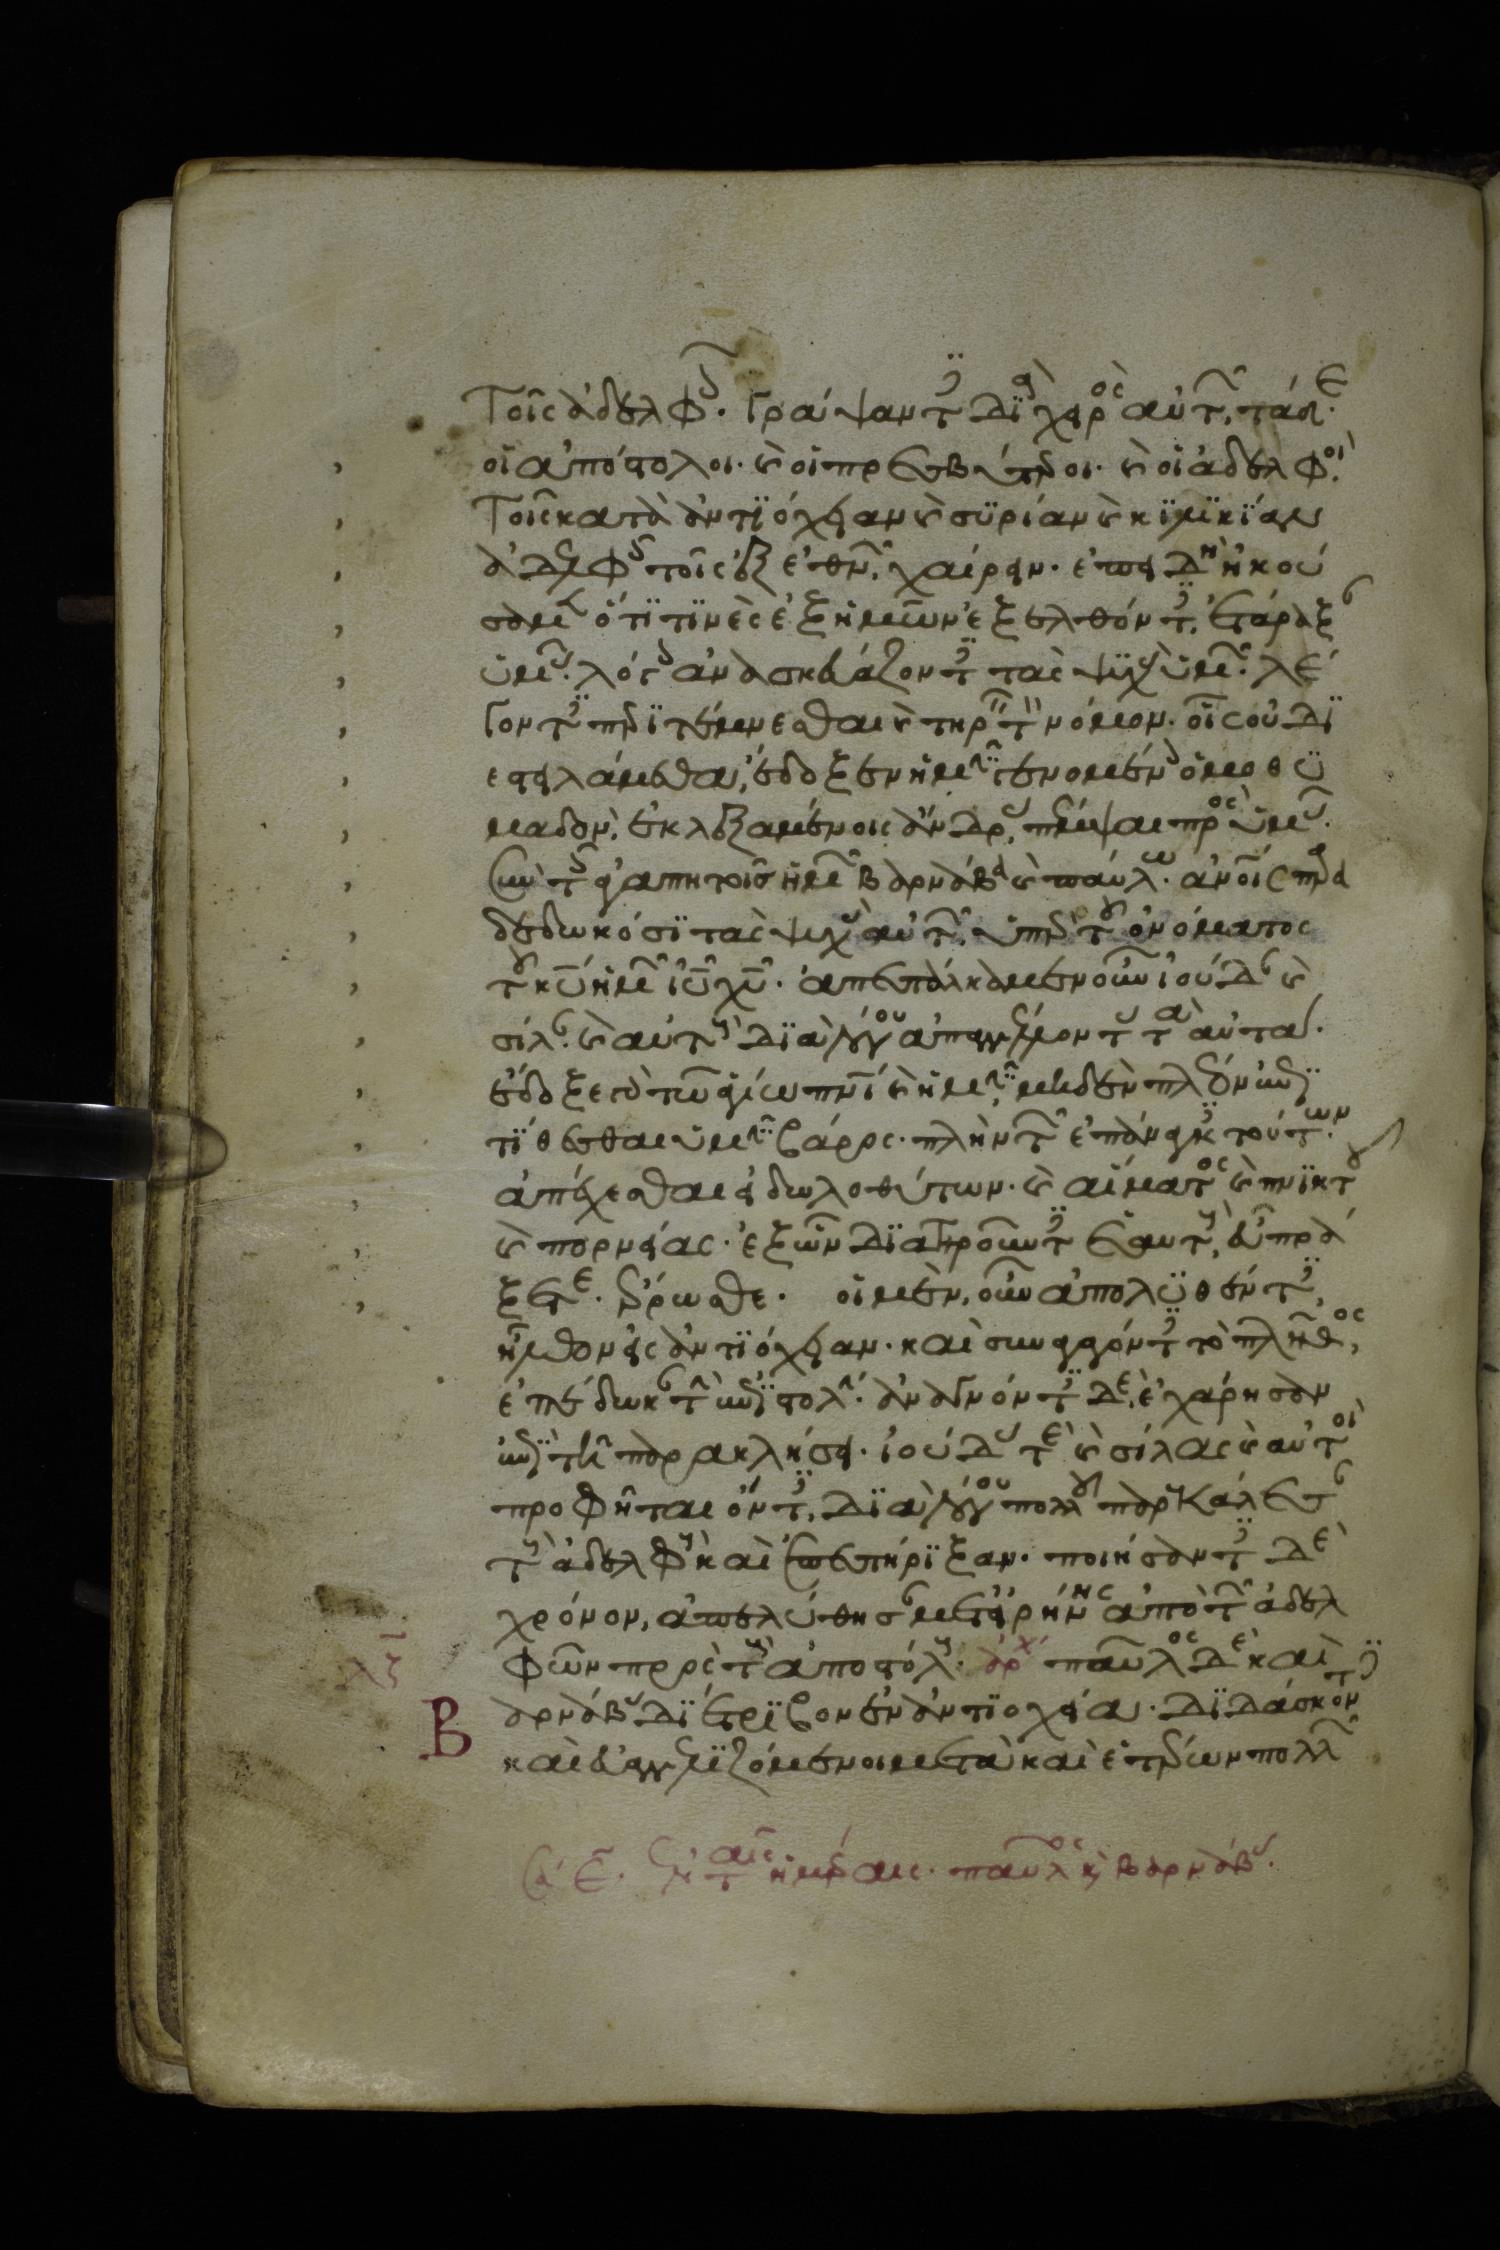 Τοῖς ἀδελφ. Γράψαντ διὰ χειρὸς αὐτ, τάδε.
οἱ ἀπόστολοι. καὶ οἱ πρεσβύτεροι. καὶ οἱ ἀδελφοὶ.
Τοῖς κατὰ ἀντϊόχειαν καὶ συρίαν καὶ κϊλϊκϊαν
ἀδελφ τοῖς ἐξ ἐθν, χαίρειν. ἐπειδὴ ἠκού
σαμεν ὅτϊ τϊνὲς ἐξ ἡμῶν ἐξελθόντ, ἐτάραξ
ὑμ. λόγ ἀνασκευάζοντ τὰς ψυχ ὑμ. λέ
γοντ περϊτέμνεσθαι καὶ τηρ τ νόμον. οἷς οὐ δϊ
εστειλάμεθα, ἔδοξεν ἡμ γενομέν ὁμοθϋ
μαδὸν, ἐκλεξαμένοις ἄνδρ, πέμψαι πρὸς ὑμ.
σὺν τ ἀγαπητοῖς ἡμ βαρνάβα καὶ παύλω. ἀνοις παρα
δεδωκόσϊ τὰς ψυχ αὐτ, ὑπὲρ τοῦ ὀνόματος
τοῦ κυ ἡμ ιυ χυ. ἀπεστάλκαμεν οὖν ἰούδ καὶ
σίλ. καὶ αὐτοὺς δϊὰ λόγου ἀπαγγέλλοντ τὰ αὐτά.
ἔδοξε γὰρ τῶ ἁγίω πνι καὶ ἡμ, μηδὲν πλέον ἐπϊ
τίθεσθαι ὑμ βάρος. πλὴν τ ἐπάναγκ τούτων.
ἀπέχεσθαι εἰδωλοθύτων. καὶ αἵματος καὶ πνϊκτοῦ
καὶ πορνείας. ἐξ ὧν δϊατηροῦντ ἑαυτοὺς, εὖ πρά
ξετε. ἔρρωσθε. οἱ μὲν, οὖν ἀπολϋθέντ,
ἦλθον εἰς ἀντϊόχειαν. καὶ συναγαγόντ τὸ πλῆθος,
ἐπέδωκ τ ἐπϊστολ. ἀναγνόντ δὲ, ἐχάρησαν
ἐπϊ τῆ παρακλήσει. ἰούδ τὲ καὶ σίλας καὶ αὐτοὶ
προφῆται ὄντ, δϊὰ λόγου πολλοῦ παρεκάλεσ
τοὺς ἀδελφοὺς καὶ ἐπεστήρϊξαν. ποιήσαντ δὲ
χρόνον, ἀπελύθησ μετ εἰρήνης ἀπὸ τ ἀδελ
φῶν πρὸς τοὺς ἀποστόλους. ἀρχ παῦλος δὲ καὶ
λζ
Βαρνάβ δϊέτρϊβον ἐν ἀντϊοχεία. δϊδάσκοντ
καὶ εὐαγγελϊζόμενοι μετὰ καὶ ἑτέρων πολλ
ταῖς ἡμέραις. παῦλος καὶ βαρνάβ.